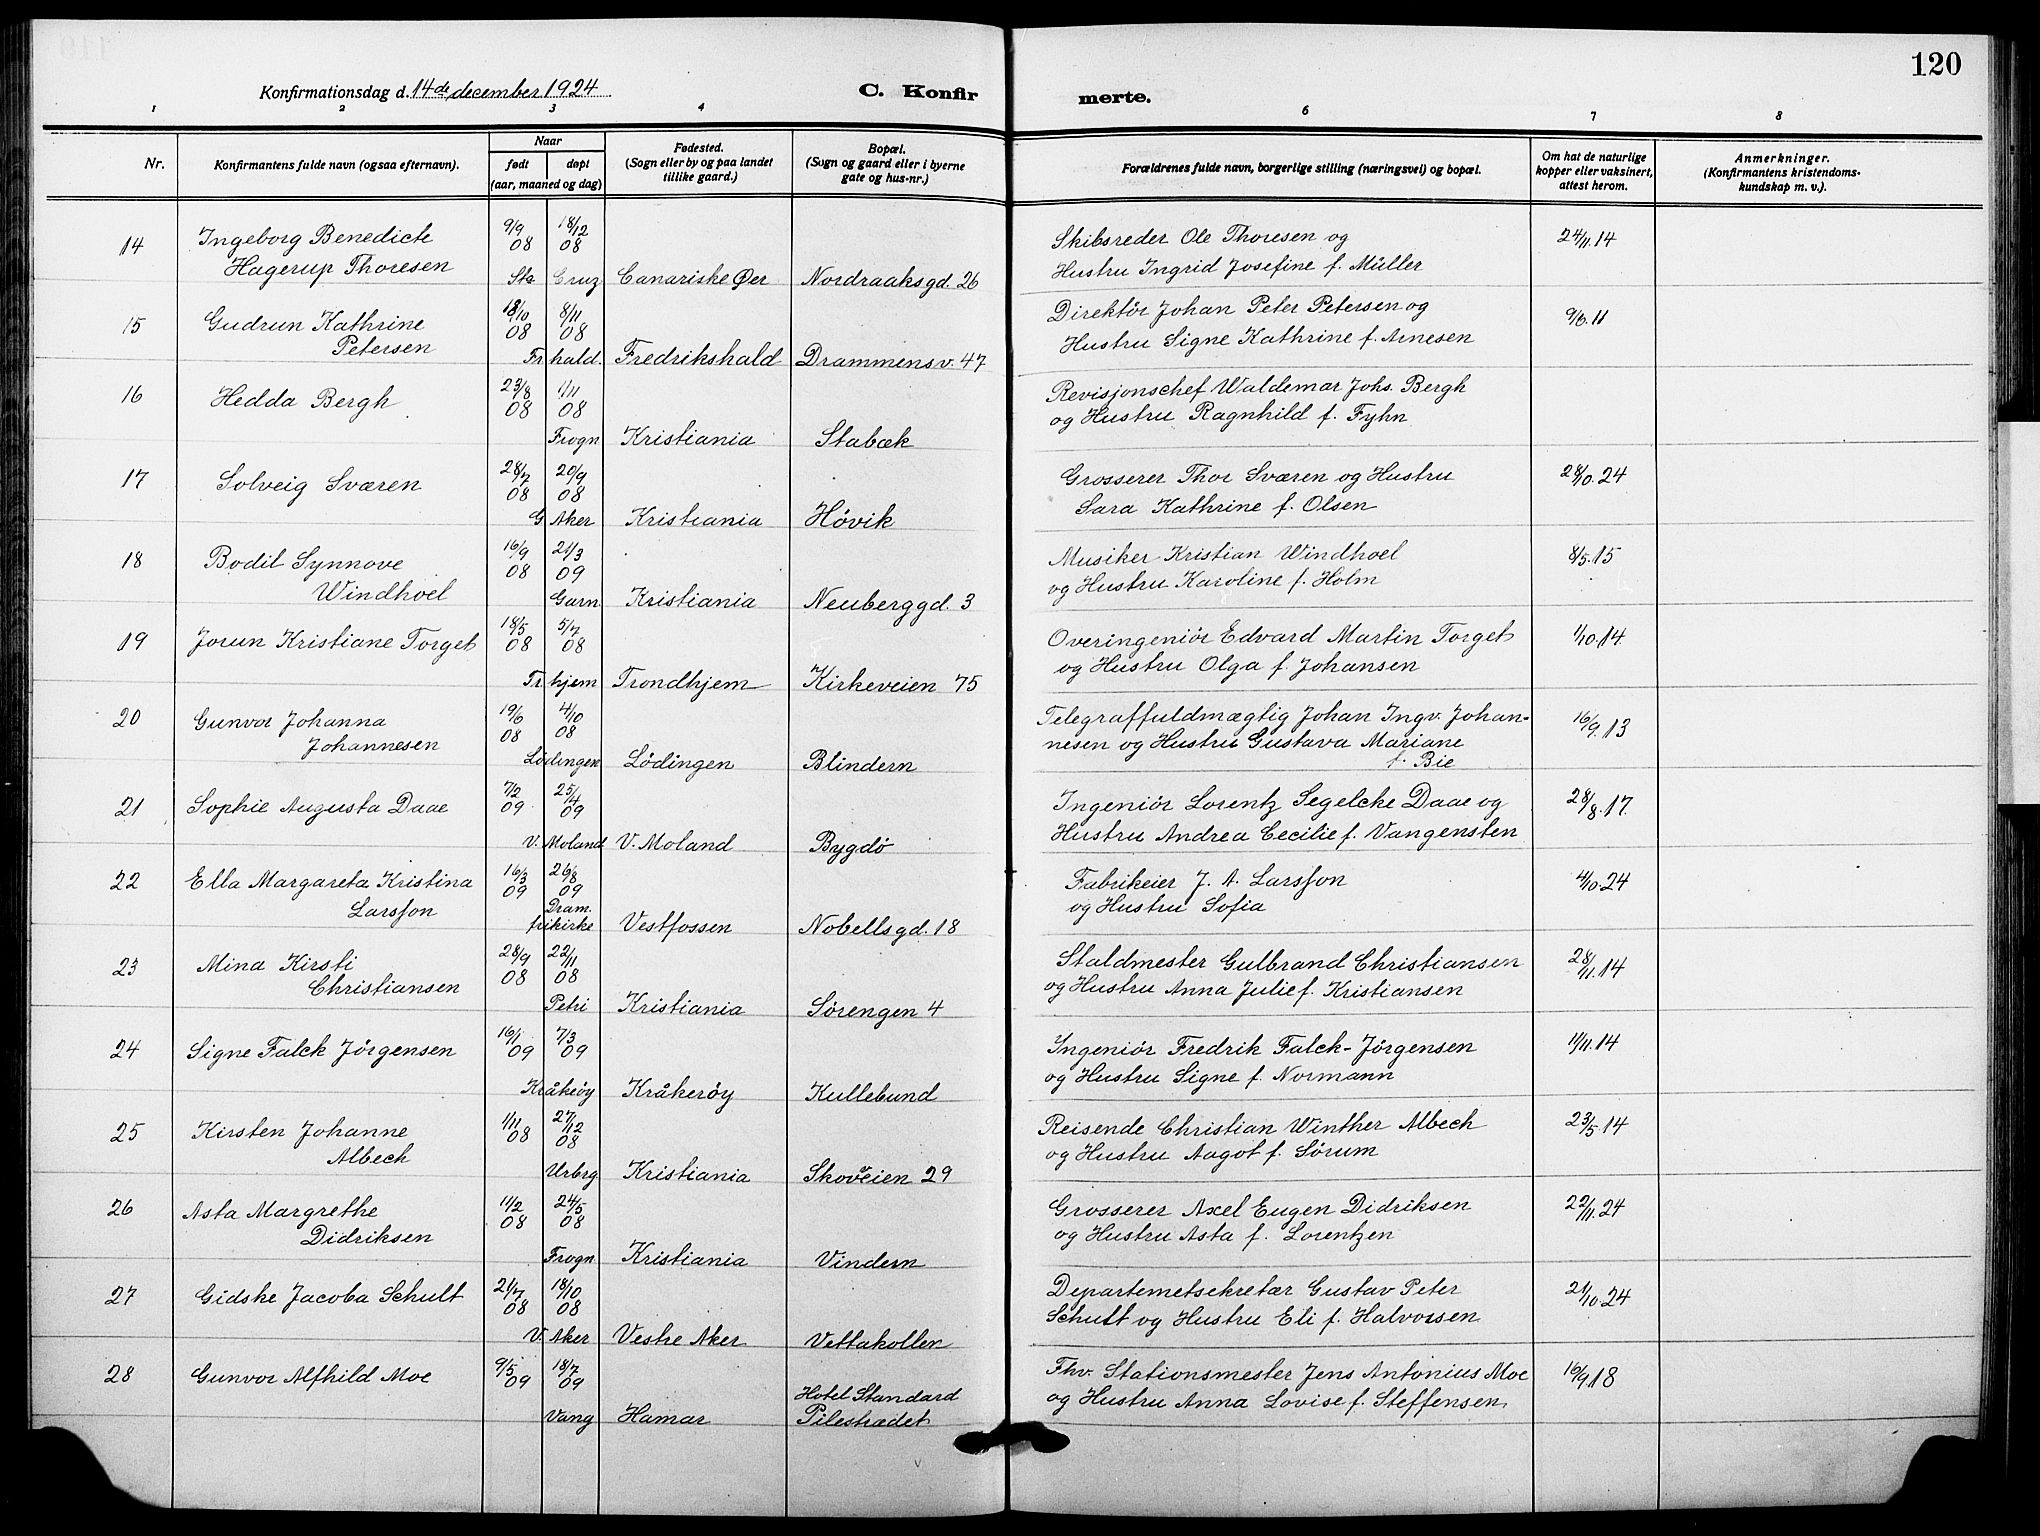 120
Konfirmationsdag d. 14de december 1924
C. Konfir
merte.
1 2 3 4 6 7 8
Nr.
Konfirmantens fulde navn (ogsaa efternavn).
Naar
født døpt
(aar, maaned og dag)
Fødested.
(Sogn eller by og paa landet
tillike gaard.)
Bopæl.
(Sogn og gaard eller i byerne
gate og hus-nr.)
Forældrenes fulde navn, borgerlige stilling (næringsvei) og bopæl.
Om hat de naturlige
kopper eller vaksinert,
attest herom.
Anmerkninger.
(Konfirmantens kristendoms-
kundskap m. v.).
14 Ingeborg Benedicte 9/9 18/12 Skibsreder Ole Thoresen og 24/11.14
Hagerup Thoresen 08 08 Hustru Ingrid Josefine f. Müller
Sta Cruz Canariske Øer Nordraaksgd. 26
15 Gudrun Kathrine 18/10 8/11 Direktör Johan Peter Petersen og 9/6.11
Petersen 08 08 Hustru Signe Kathrine f. Arnesen
Fr.hald. Fredrikshald Drammensv. 47
16 Hedda Bergh 23/8 1/11 Revisjonschef Waldemar Johs. Bergh
08 08 og Hustru Ragnhild f. Fyhn
Frogn Kristiania Stabæk
17 Solveig Sværen 28/7 20/9 Grosserer Thor Sværen og Hustru 28/10.24
08 08 Sara Kathrine f. Olsen
G Aker Kristiania Hövik
18 Bodil Synnove 16/9 21/3 Musiker Kristian Windhoel 8/5.15
Windhoel 08 09 og Hustru Karoline f. Holm
Garn Kristiania Neuberggd. 3
19 Jorun Kristiane Torget 18/5 5/7 Overingeniör Edvard Martin Torget 1/10.14
08 08 og Hustru Olga f. Johansen
Tr.hjem Trondhjem Kirkeveien 75
20 Gunvor Johanna 19/6 4/10 Telegraffuldmægtig Johan Ingv. Johan- 16/9.13
Johannesen 08 08 nesen og Hustru Gustava Mariane
f. Bie
Lödingen Lödingen Blindern
21 Sophie Augusta Daae 7/2 25/4 Ingeniör Lorentz Segelcke Daae og 28/8.17.
09 09 Hustru Andrea Cecilie f. Vangensten
V. Moland V. Moland Bygdö
22 Ella Margareta Kristina 16/3 26/8 Fabrikeier J. A. Larsson 4/10.24
Larsson 09 09 og Hustru Sofia
Dram.
frikirke Vestfossen Nobellsgd. 18
23 Mina Kirsti 28/9 22/11 Staldmester Gulbrand Christiansen 28/11.14
Christiansen 08 08 og Hustru Anna Julie f. Kristiansen
Petri Kristiania Sörengen 4
24 Signe Falck Jörgensen 16/1 7/3 Ingeniör Fredrik Falck-Jörgensen 11/11.14
09 09 og Hustru Signe f. Normann
Kråkeöy Kråkeröy Kullebund
25 Kirsten Johanne 1/11 27/12 Reisende Christian Winther Albech 23/5.14
Albech 08 08 og Hustru Aagot f. Sörum
Urbrg. Kristiania Skovveien 29
26 Asta Margrethe 11/2 24/5 Grosserer Axel Eugen Didriksen 22/11.24
Didriksen 08 08 og Hustru Asta f. Lorentzen
Frogn Kristiania Vindern
27 Gidske Jacoba Schult 21/7 18/10 Departemetsekretær Gustav Peter 21/10.24
08 08 Schult og Hustru Eli f. Halvorsen
V. Aker Vestre Aker Vettakollen
28 Gunvor Alfhild Moe 9/5 18/7 Fhv. Stationsmester Jens Antonius Moe 16/9.18
09 09 og Hustru Anna Lovise f. Steffensen
Hotel Standard
Vang Hamar Pilestrædet